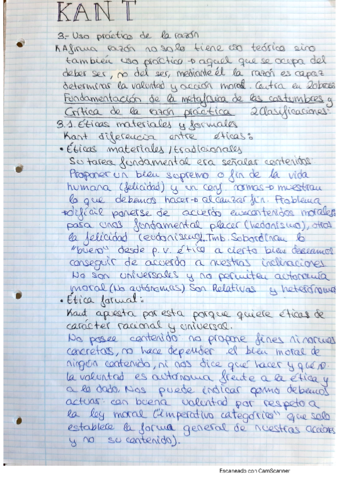 KANT
3.- Uso práctico de la razón
K Afirma razón no solo tiene uso teórico sino
también uso práctico → aquel que se ocupa del
deber ser, no del ser, mediante él la razón es capaz
determinar la voluntad y acción moral. Centra en 2 obras
Fundamentación de la metafísica de las costumbres y
Crítica de la razón práctica 2 Clasificaciones:
3.1. Éticas materiales y formales
Kant diferencia entre éticas:
• Éticas materiales / tradicionales
Su tarea fundamental era señalar contenidos
Proponer un bien supremo o fin de la vida
humana (felicidad) y un conj normas → muestran
lo que debemos hacer → alcanzar fin. Problema
→ difícil ponerse de acuerdo en contenidos morales
para unos fundamental placer (hedonismo), otros
la felicidad (eudonismo). Tmb. Subordinan lo
"bueno" desde p.v. ética a cierto bien deseamos
conseguir de acuerdo a nuestras inclinaciones
No son universales y no permiten autonomía
moral (No autónomas) Son relativas y heterónomas
• Ética formal:
Kant apuesta por esta porque quiere éticas de
carácter racional y universal.
No posee contenido no propone fines ni normas
concretas, no hace depender el bien moral de
ningún contenido, ni nos dice qué hacer y que
la voluntad es autónoma frente a la ética y
a lo dado. Nos puede indicar como debemos
actuar con buena voluntad por respeto a
la ley moral ("imperativo categórico" que solo
establece la forma general de nuestras acciones
y no su contenido).
Escaneado con CamScanner